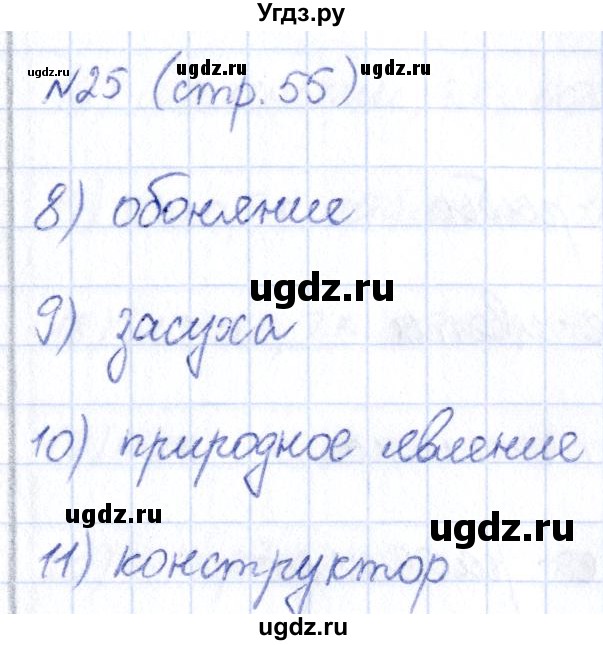 Угдз.ру
ugdz.ru ugdz.ru ugdz.ru
№25 (стр. 55)
8) обоняние
ugdz.ru
9) засуха
10) природное явление
ugdz.ru ugdz.ru
11) конструктор
ugdz.ru